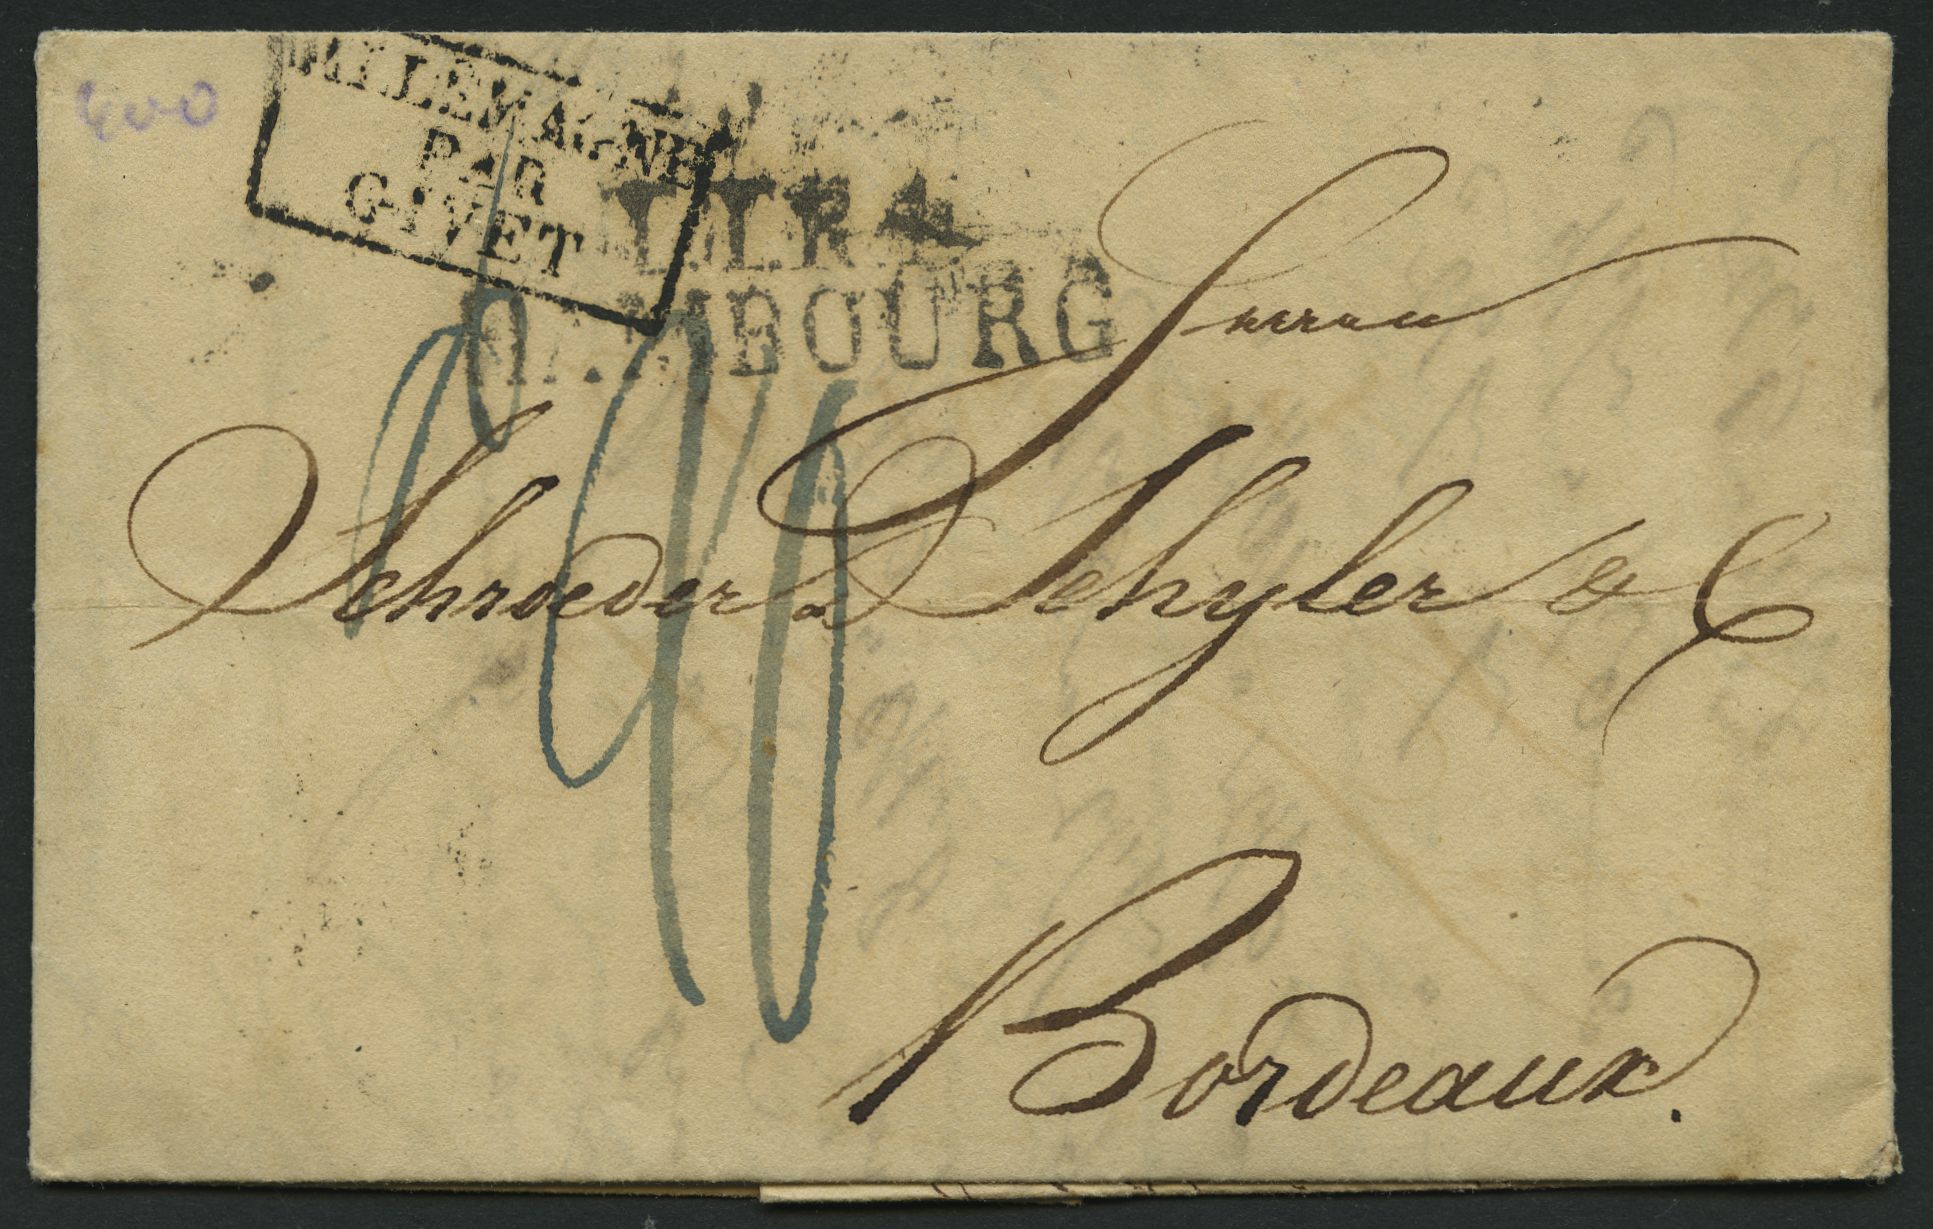 400
ALLEMAGNE
PAR
GIVET
T.T.R.4.
HAMBOURG
Herren
Schroeder & Schyler & C
Bordeaux.